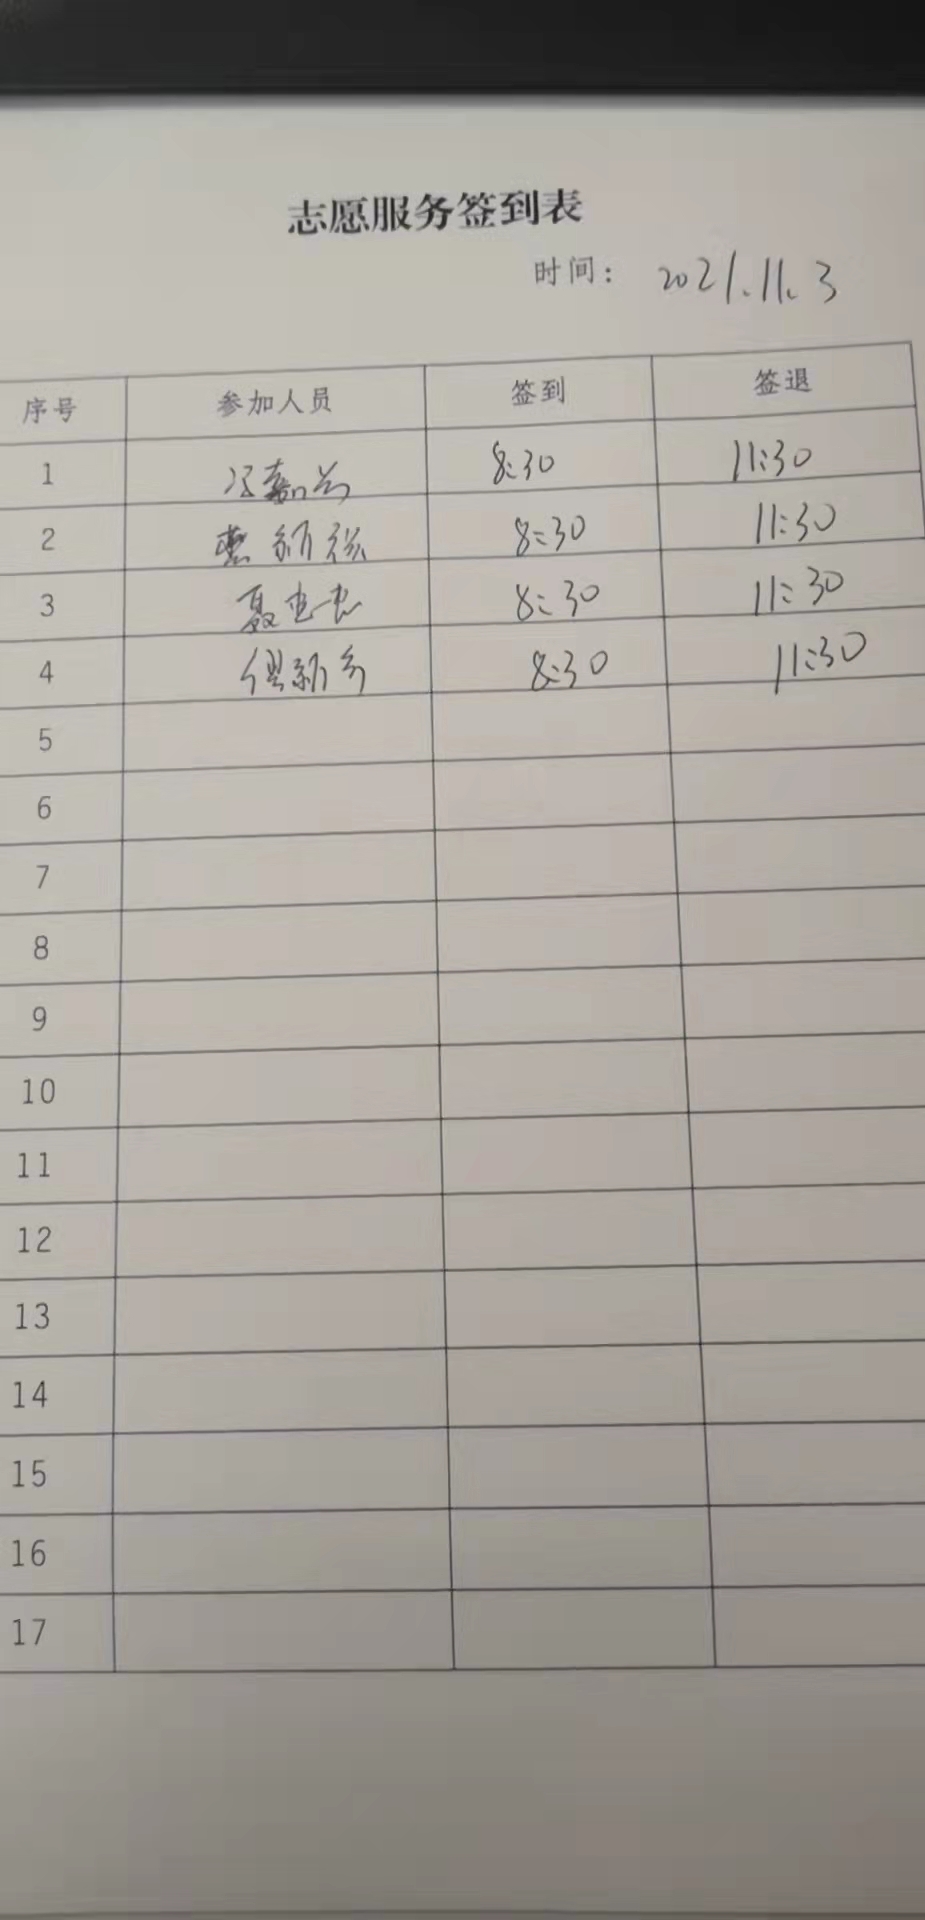 志愿服务签到表
时间： 2021.11.3
序号 参加人员 签到 签退
1 8:30 11:30
2 8:30 11:30
3 8:30 11:30
4 8:30 11:30
5
6
7
8
9
10
11
12
13
14
15
16
17